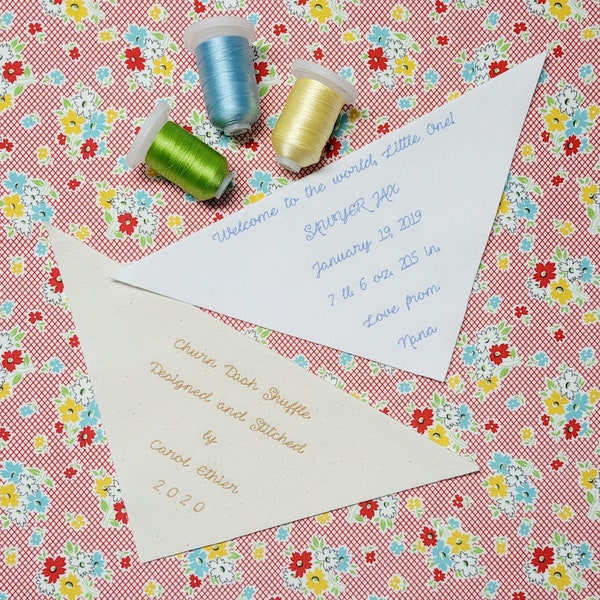 Welcome to the world, Little One!
SAWYER JAX
January 19, 2019
7 lb. 6 oz. 20.5 in.
Love from
Nana
Churn Dash Shuffle
Designed and Stitched
by
Carol Ethier
2020